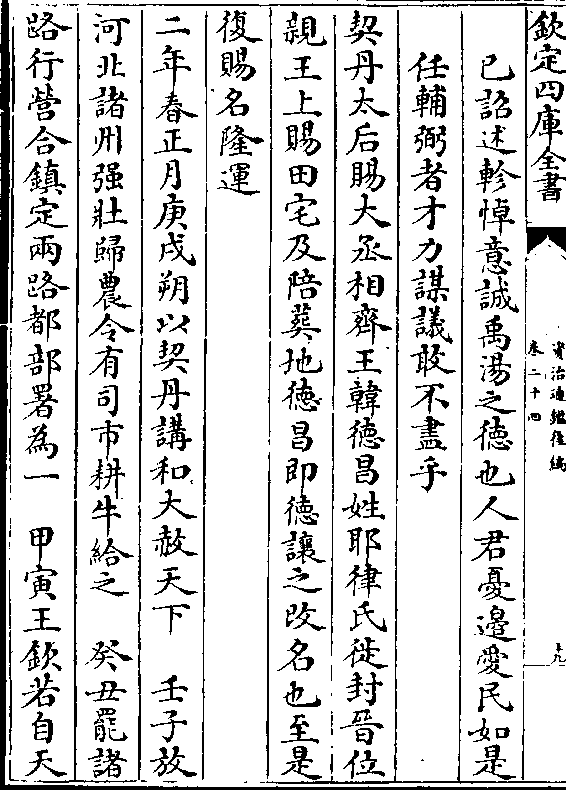 欽定四庫全書
資治通鑑後編
卷二十四
十九
已詔述軫悼意誠禹湯之徳也人君憂邉愛民如是
任輔弼者才力謀議敢不盡乎
契丹太后賜大丞相齊王韓徳昌姓耶律氏徙封晉位
親王上賜田宅及陪葬地徳昌即徳讓之改名也至是
復賜名隆運
二年春正月庚戌朔以契丹講和大赦天下　壬子放
河北諸州强壯歸農令有司市耕牛給之　癸丑罷諸
路行營合鎮定兩路都部署為一　甲寅王欽若自天